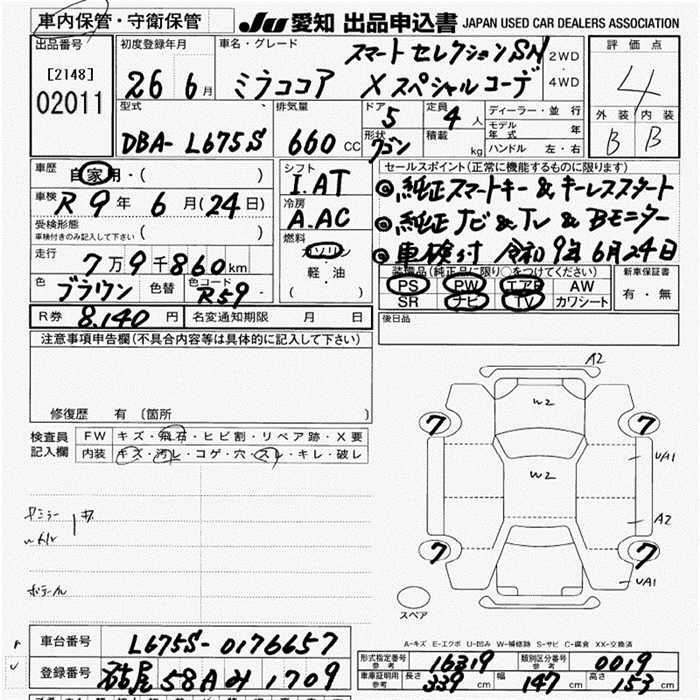 車内保管・守衛保管
JU 愛知 出品申込書 JAPAN USED CAR DEALERS ASSOCIATION
出品番号 [2148] 02011
初度登録年月 26年 6月
車名・グレード ミラココア スマートセレクションSN Xスペシャルコーデ
2WD・4WD
評価点 4
外装 B 内装 B
型式 DBA-L675S
排気量 660 CC
ドア 5
形状 ワゴン
定員 4人
積載 kg
ディーラー・並行
モデル年式 年
ハンドル 左・右
車歴 自家用・( )
車検 R9年 6月(24日)
受検形態 車検付きのみ記入して下さい ( )
走行 7万9千860km
色 ブラウン 色替 色コード R59
シフト I.AT
冷房 A.AC
燃料 ガソリン・軽・油 ( )
セールスポイント(正常に機能するものに限ります)
◎純正スマートキー&キーレススタート
◎純正ナビ&TV&Bモニター
◎車検付 令和9年6月24日
装備品(純正品に限り○をつけてください)
PS PW エアB AW
SR ナビ TV カワシート
新車保証書 有・無
R券 8,140円 名変通知期限 月 日
後日品
注意事項申告欄(不具合内容等は具体的に記入して下さい)
修復歴 有 (箇所 )
検査員記入欄
FW キズ・飛石・ヒビ割・リペア跡・X要
内装 キズ・汚レ・コゲ・穴・スレ・キレ・破レ
A2
W2
7 7
UA1
W2
A2
7 7
UA1
スペア
A-キズ E-エクボ U-凹み W-補修跡 S-サビ C-腐食 XX-交換済
車台番号 L675S-0176657
登録番号 名古屋 58A み 1709
形式指定番号 参考 16319 類別区分番号 参考 0019
車庫証明用 参考 長さ 339 cm 幅 147 cm 高さ 153 cm